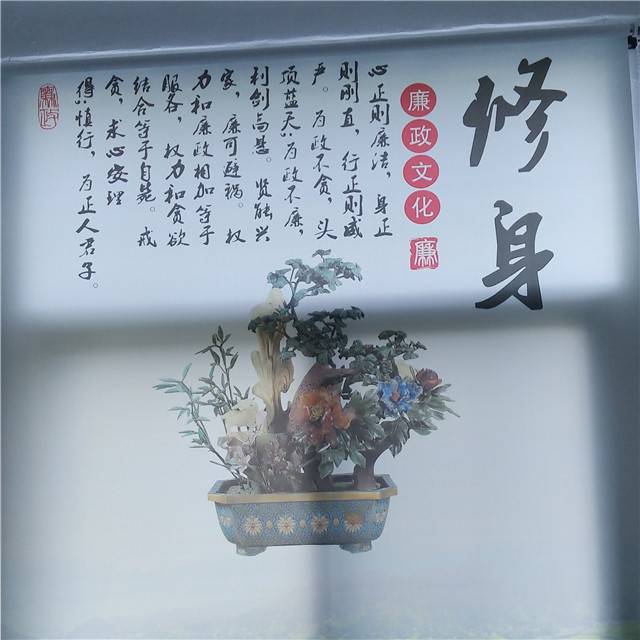 修身
廉政文化
廉
心正则廉洁，身正
则刚直，行正则威
严。为政不贪，头
项蓝天；为政不廉，
利剑高悬。贤能兴
家，廉可避祸。权
力和廉政相加等于
服务，权力和贪欲
结合等于自毙。戒
贪，求心安理
得；慎行，为正人君子。
廉政